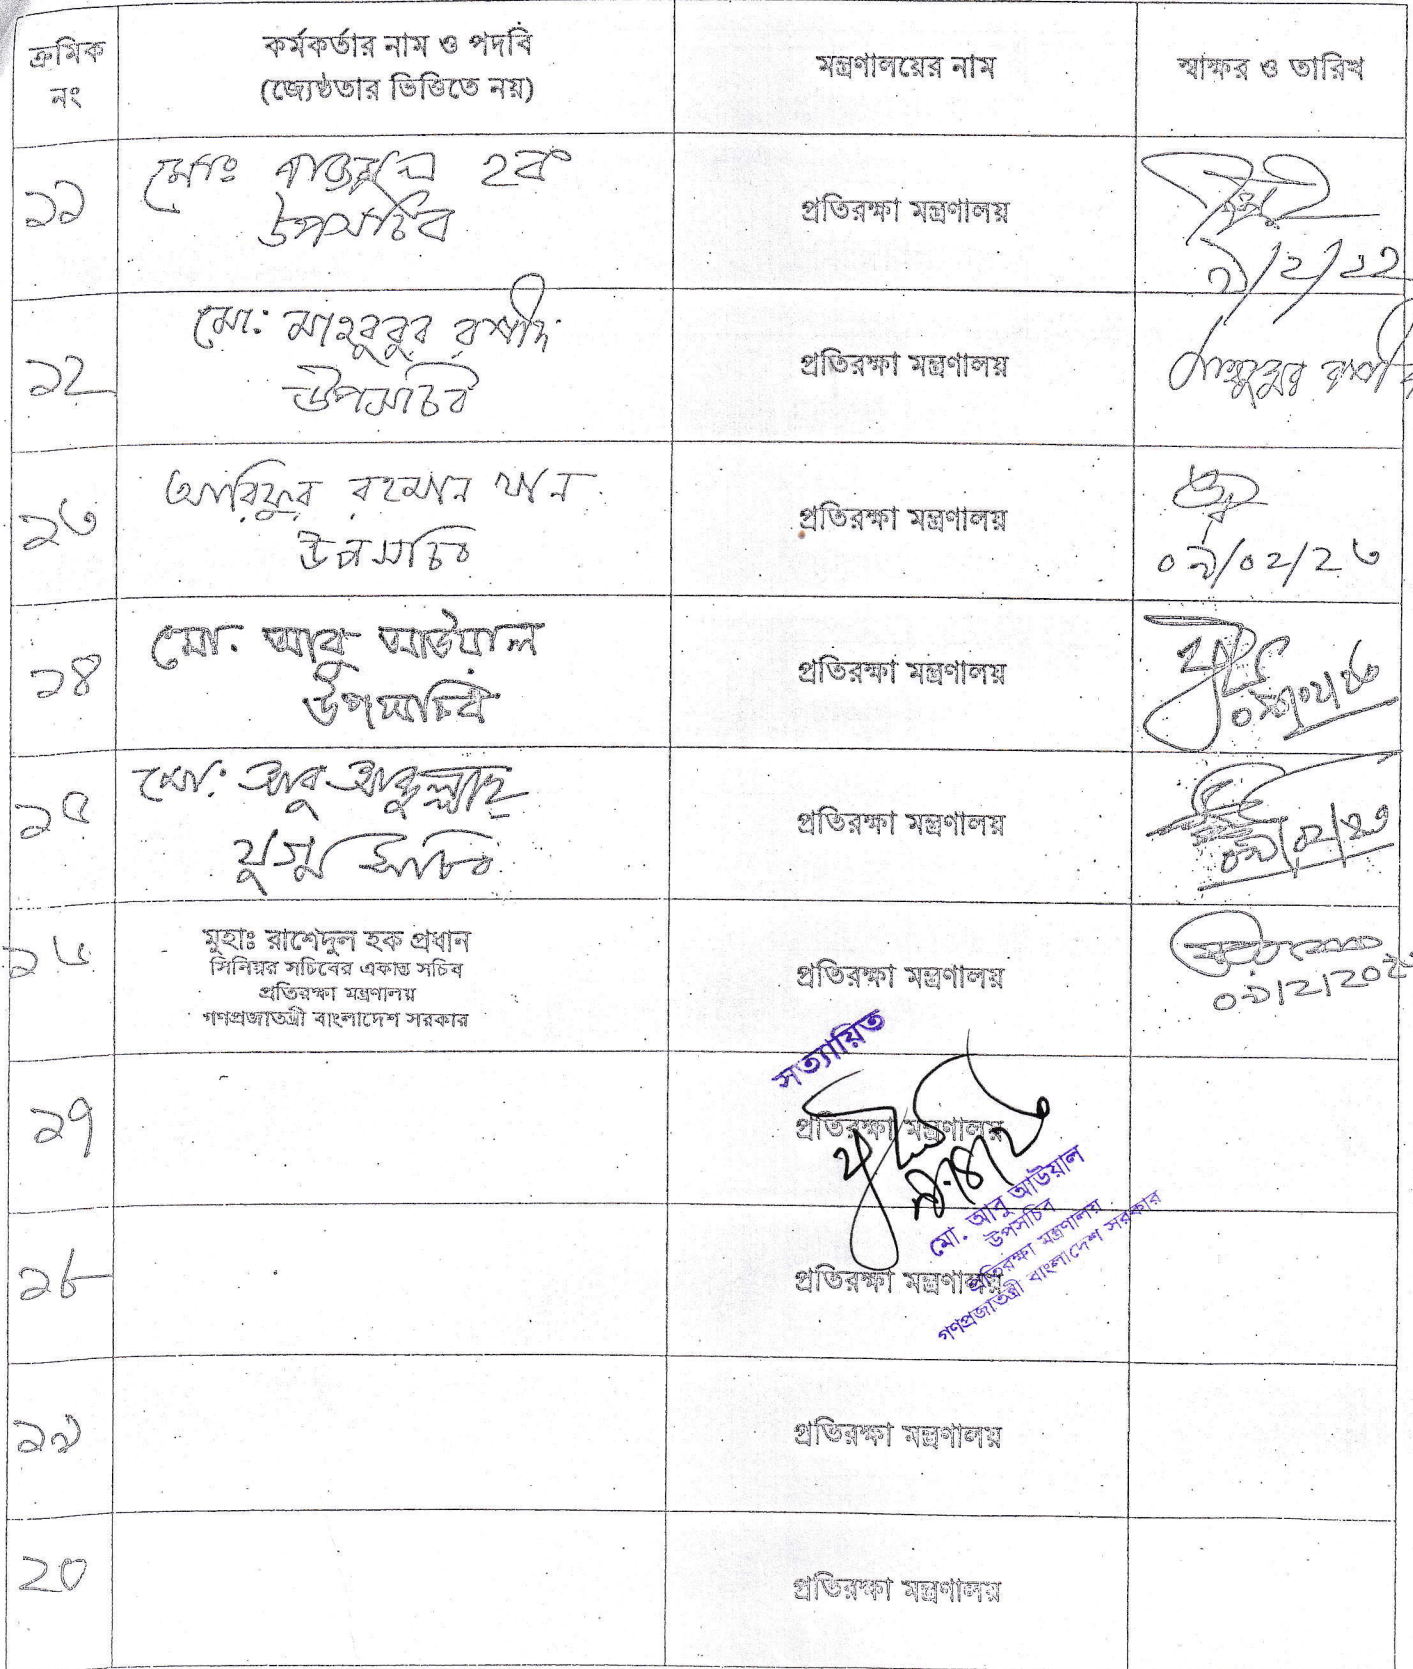 ক্রমিক নং
কর্মকর্তার নাম ও পদবি
(জ্যেষ্ঠতার ভিত্তিতে নয়)
মন্ত্রণালয়ের নাম
স্বাক্ষর ও তারিখ
১১
মোঃ নাজমুল হক
উপসচিব
প্রতিরক্ষা মন্ত্রণালয়
১২
মো: মাহবুবুর রশীদ
উপসচিব
প্রতিরক্ষা মন্ত্রণালয়
মাহবুবুর রশীদ
১৩
আরিফুর রহমান খান
উপসচিব
প্রতিরক্ষা মন্ত্রণালয়
০৯/০২/২৩
১৪
মো. আবু আউয়াল
উপসচিব
প্রতিরক্ষা মন্ত্রণালয়
১৫
মো: আবু আব্দুল্লাহ
যুগ্ম সচিব
প্রতিরক্ষা মন্ত্রণালয়
০৯/০২/২৩
১৬
মুহাঃ রাশেদুল হক প্রধান
সিনিয়র সচিবের একান্ত সচিব
প্রতিরক্ষা মন্ত্রণালয়
গণপ্রজাতন্ত্রী বাংলাদেশ সরকার
প্রতিরক্ষা মন্ত্রণালয়
সত্যায়িত
১৭
প্রতিরক্ষা মন্ত্রণালয়
মো. আবু আউয়াল
উপসচিব
প্রতিরক্ষা মন্ত্রণালয়
গণপ্রজাতন্ত্রী বাংলাদেশ সরকার
১৮
প্রতিরক্ষা মন্ত্রণালয়
১৯
প্রতিরক্ষা মন্ত্রণালয়
২০
প্রতিরক্ষা মন্ত্রণালয়